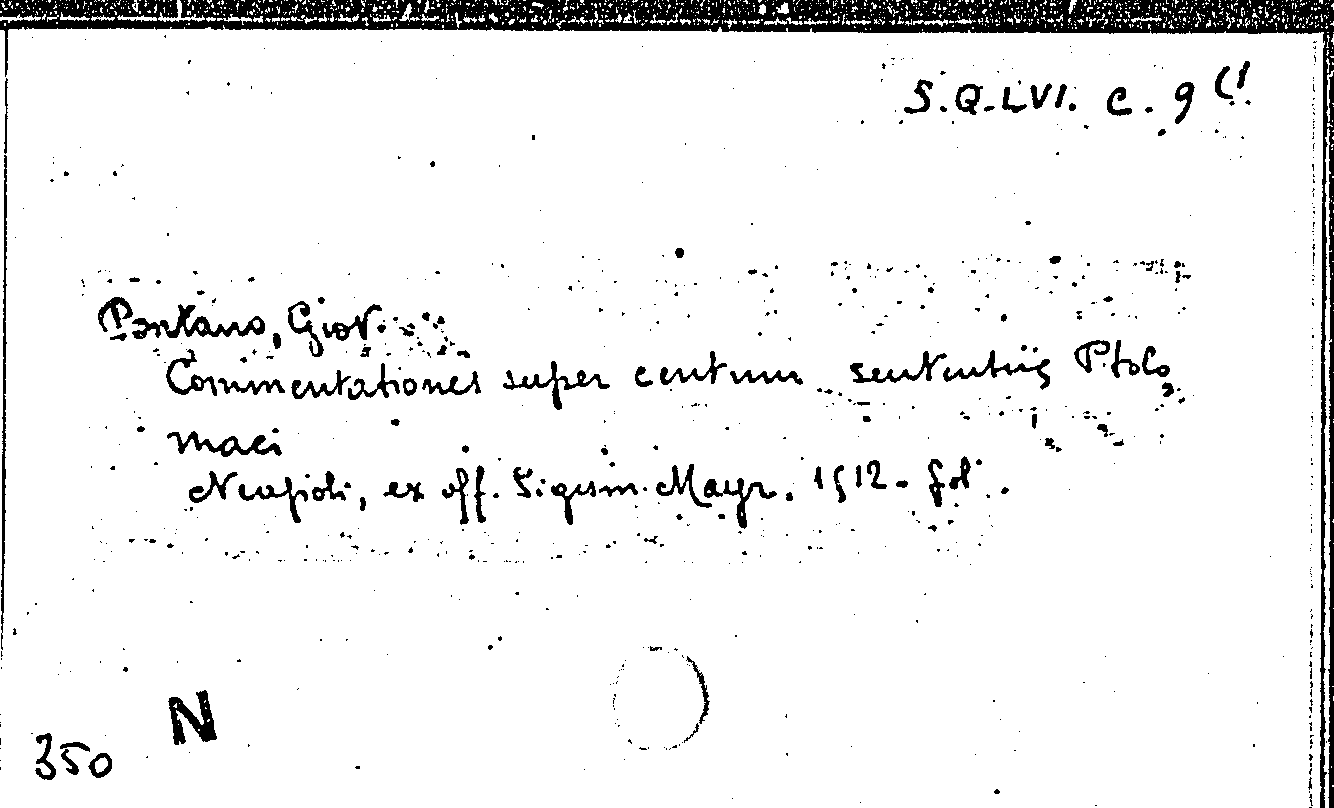 S.Q.LVI. C. 9 (1
Pontano, Giov.
Commentationes super centum sententiis Ptolo
maei
Neapoli, ex off. Sigism. Mayr. 1512. fol.
N
350